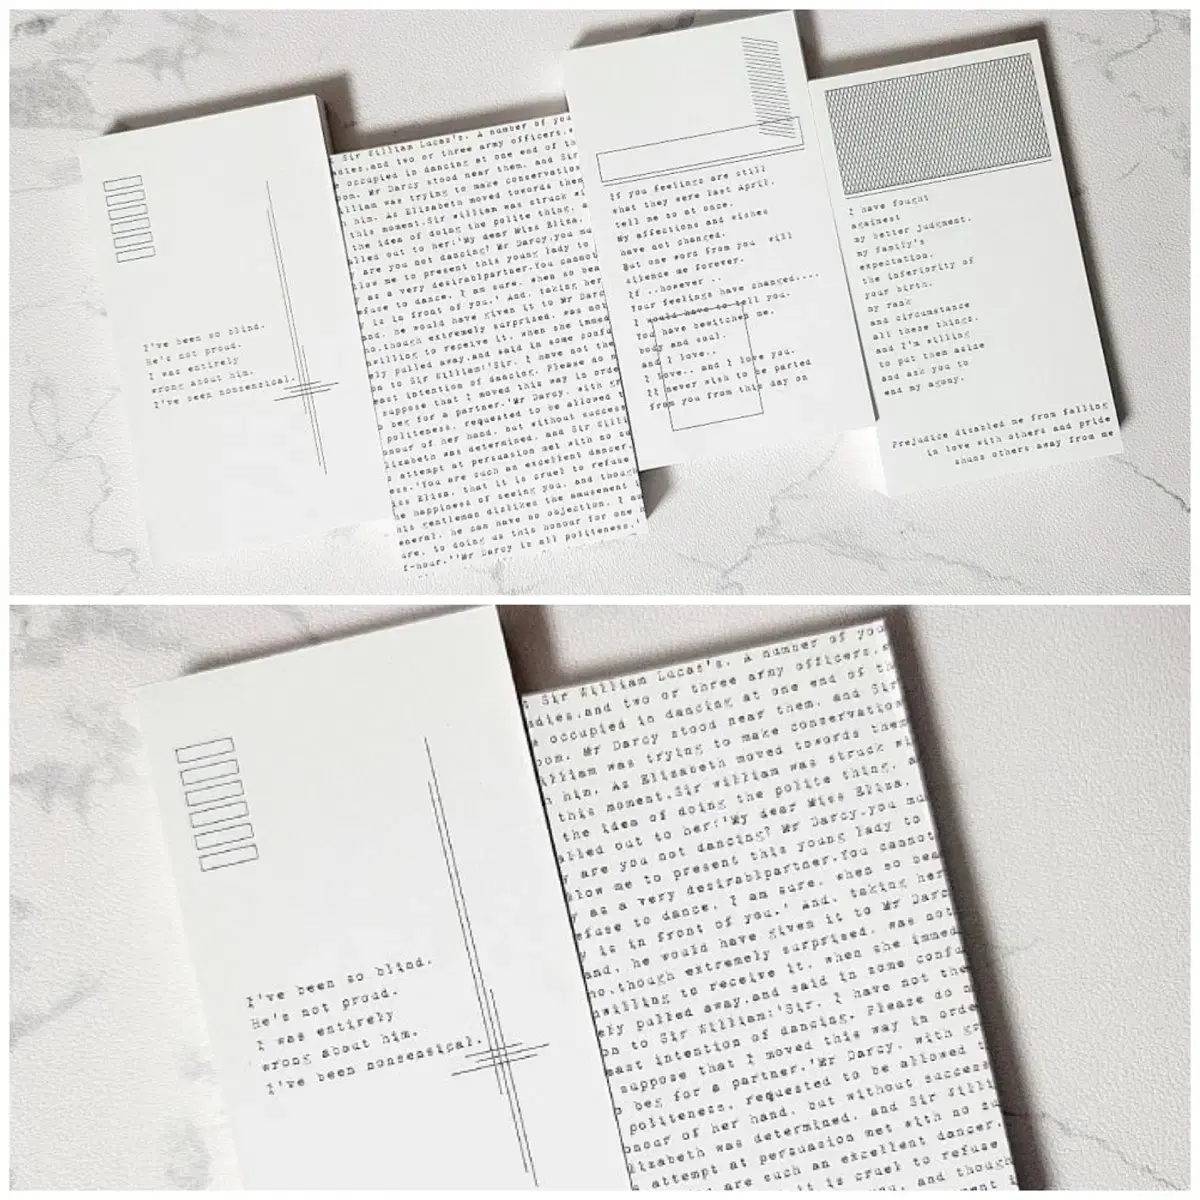 I've been so blind.
He's not proud.
I was entirely
wrong about him.
I've been nonsensical.
Sir William Lucas's. A number of you
dies.and two or three army officers.
occupied in dancing at one end of th
oom. Mr Darcy stood near them. and Sir
illiam was trying to make conservation
h him. As Elizabeth moved towards them
this moment.Sir william was struck wi
the idea of doing the polite thing. a
alled out to her:'My dear Miss Eliza.
y are you not dancing? Mr Darcy.you mu
low me to present this young lady to
as a very desirablpartner.You cannot
efuse to dance. I am sure. when so bea
y is in front of you.' And. taking her
and. he would have given it to Mr Darc
ho.though extremely surprised. was not
nwilling to receive it. when she immed
ely pulled away.and said in some confu
on to Sir William:'Sir. I have not the
east intention of dancing. Please do n
suppose that I moved this way in orde
o beg for a partner.'Mr Darcy. with gr
politeness. requested to be allowed t
onour of her hand. but without success
lizabeth was determined. and Sir Willi
s attempt at persuasion met with no su
ess.'You are such an excellent dancer.
iss Eliza. that it is cruel to refuse
he happiness of seeing you. and though
his gentleman dislikes the amusement i
eneral. he can have no objection. I am
ure. to doing us this honour for one
f-hour.''Mr Darcy is all politeness.'
If you feelings are still
what they were last April.
tell me so at once.
My affections and wishes
have not changed.
But one word from you will
silence me forever.
If ..however ..
Your feelings have changed....
I would have to tell you.
You have bewitched me.
body and soul.
and I love..
I love.. and I love you.
II never wish to be parted
from you from this day on
I have fought
againest
my better judgment.
my family's
expectation.
the inferiority of
your birth.
my rank
and circumstance
all these things.
and I'm willing
to put them aside
and ask you to
end my agony.
Prejudice disabled me from falling
in love with others and pride
shuns others away from me
I've been so blind.
He's not proud.
I was entirely
wrong about him.
I've been nonsensical.
Sir William Lucas's. A number of you
dies.and two or three army officers.
occupied in dancing at one end of th
oom. Mr Darcy stood near them. and Sir
illiam was trying to make conservation
h him. As Elizabeth moved towards them
this moment.Sir william was struck wi
the idea of doing the polite thing. a
alled out to her:'My dear Miss Eliza.
y are you not dancing? Mr Darcy.you mu
low me to present this young lady to
as a very desirablpartner.You cannot
efuse to dance. I am sure. when so bea
y is in front of you.' And. taking her
and. he would have given it to Mr Darc
ho.though extremely surprised. was not
nwilling to receive it. when she immed
ely pulled away.and said in some confu
on to Sir William:'Sir. I have not the
east intention of dancing. Please do n
suppose that I moved this way in orde
o beg for a partner.'Mr Darcy. with gr
politeness. requested to be allowed t
onour of her hand. but without success
lizabeth was determined. and Sir Willi
s attempt at persuasion met with no su
are such an excellent dancer.
it is cruel to refuse
you. and though